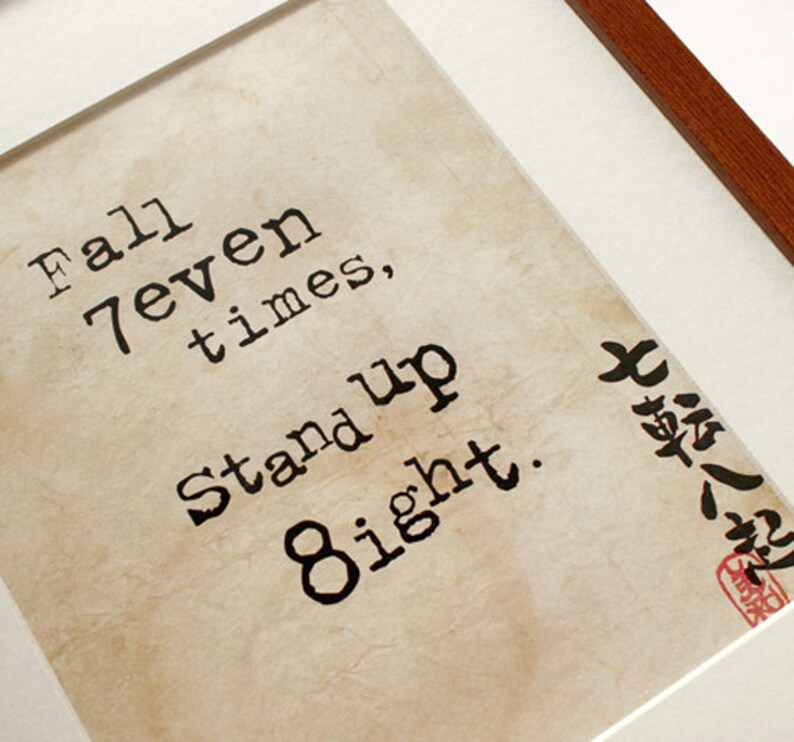 Fall
7even
times,
Stand up
8ight.
七転八起